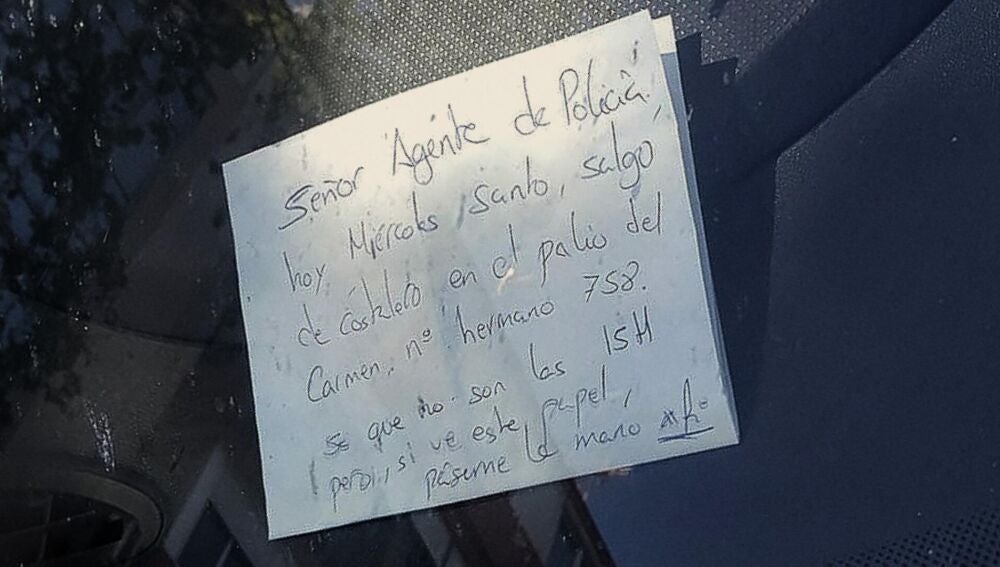 Señor Agente de Policía,
hoy Miércoles Santo, salgo,
de costalero en el palio del
Carmen, nº hermano 758.
se que no son las 15H
pero, si ve este papel,
páseme la mano